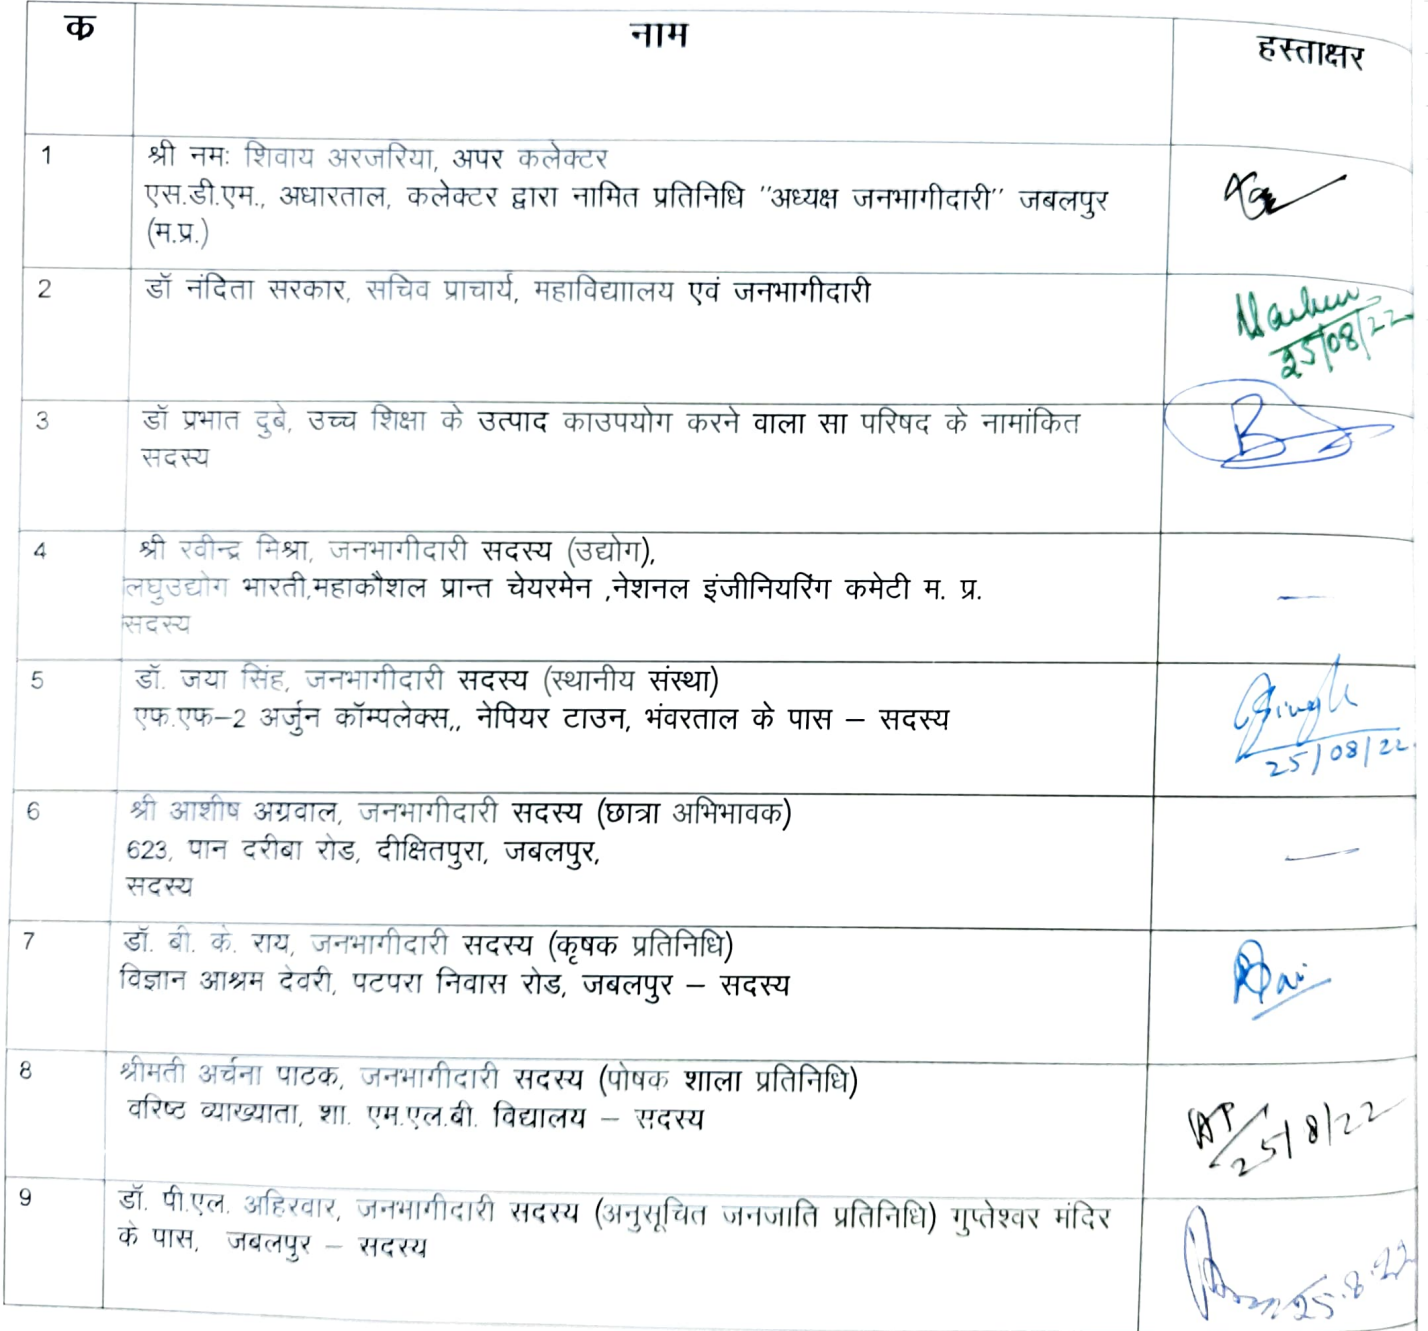 क्र नाम हस्ताक्षर
1 श्री नमः शिवाय अरजरिया, अपर कलेक्टर
एस.डी.एम., अधारताल, कलेक्टर द्वारा नामित प्रतिनिधि "अध्यक्ष जनभागीदारी" जबलपुर
(म.प्र.)
2 डॉ नंदिता सरकार, सचिव प्राचार्य, महाविद्याालय एवं जनभागीदारी
25/08/22
3 डॉ प्रभात दुबे, उच्च शिक्षा के उत्पाद काउपयोग करने वाला सा परिषद के नामांकित
सदस्य
4 श्री रवीन्द्र मिश्रा, जनभागीदारी सदस्य (उद्योग),
लघुउद्योग भारती,महाकौशल प्रान्त चेयरमेन ,नेशनल इंजीनियरिंग कमेटी म. प्र. —
सदस्य
5 डॉ. जया सिंह, जनभागीदारी सदस्य (स्थानीय संस्था)
एफ.एफ-2 अर्जुन कॉम्पलेक्स,, नेपियर टाउन, भंवरताल के पास – सदस्य
Singh
25/08/22
6 श्री आशीष अग्रवाल, जनभागीदारी सदस्य (छात्रा अभिभावक)
623, पान दरीबा रोड, दीक्षितपुरा, जबलपुर, —
सदस्य
7 डॉ. बी. के. राय, जनभागीदारी सदस्य (कृषक प्रतिनिधि)
विज्ञान आश्रम देवरी, पटपरा निवास रोड, जबलपुर – सदस्य
8 श्रीमती अर्चना पाटक, जनभागीदारी सदस्य (पोषक शाला प्रतिनिधि)
वरिष्ट व्याख्याता, शा. एम.एल.बी. विद्यालय – सदस्य
AP
25/8/22
9 डॉ. पी.एल. अहिरवार, जनभागीदारी सदस्य (अनुसूचित जनजाति प्रतिनिधि) गुप्तेश्वर मंदिर
के पास, जबलपुर – सदस्य
25.8.22